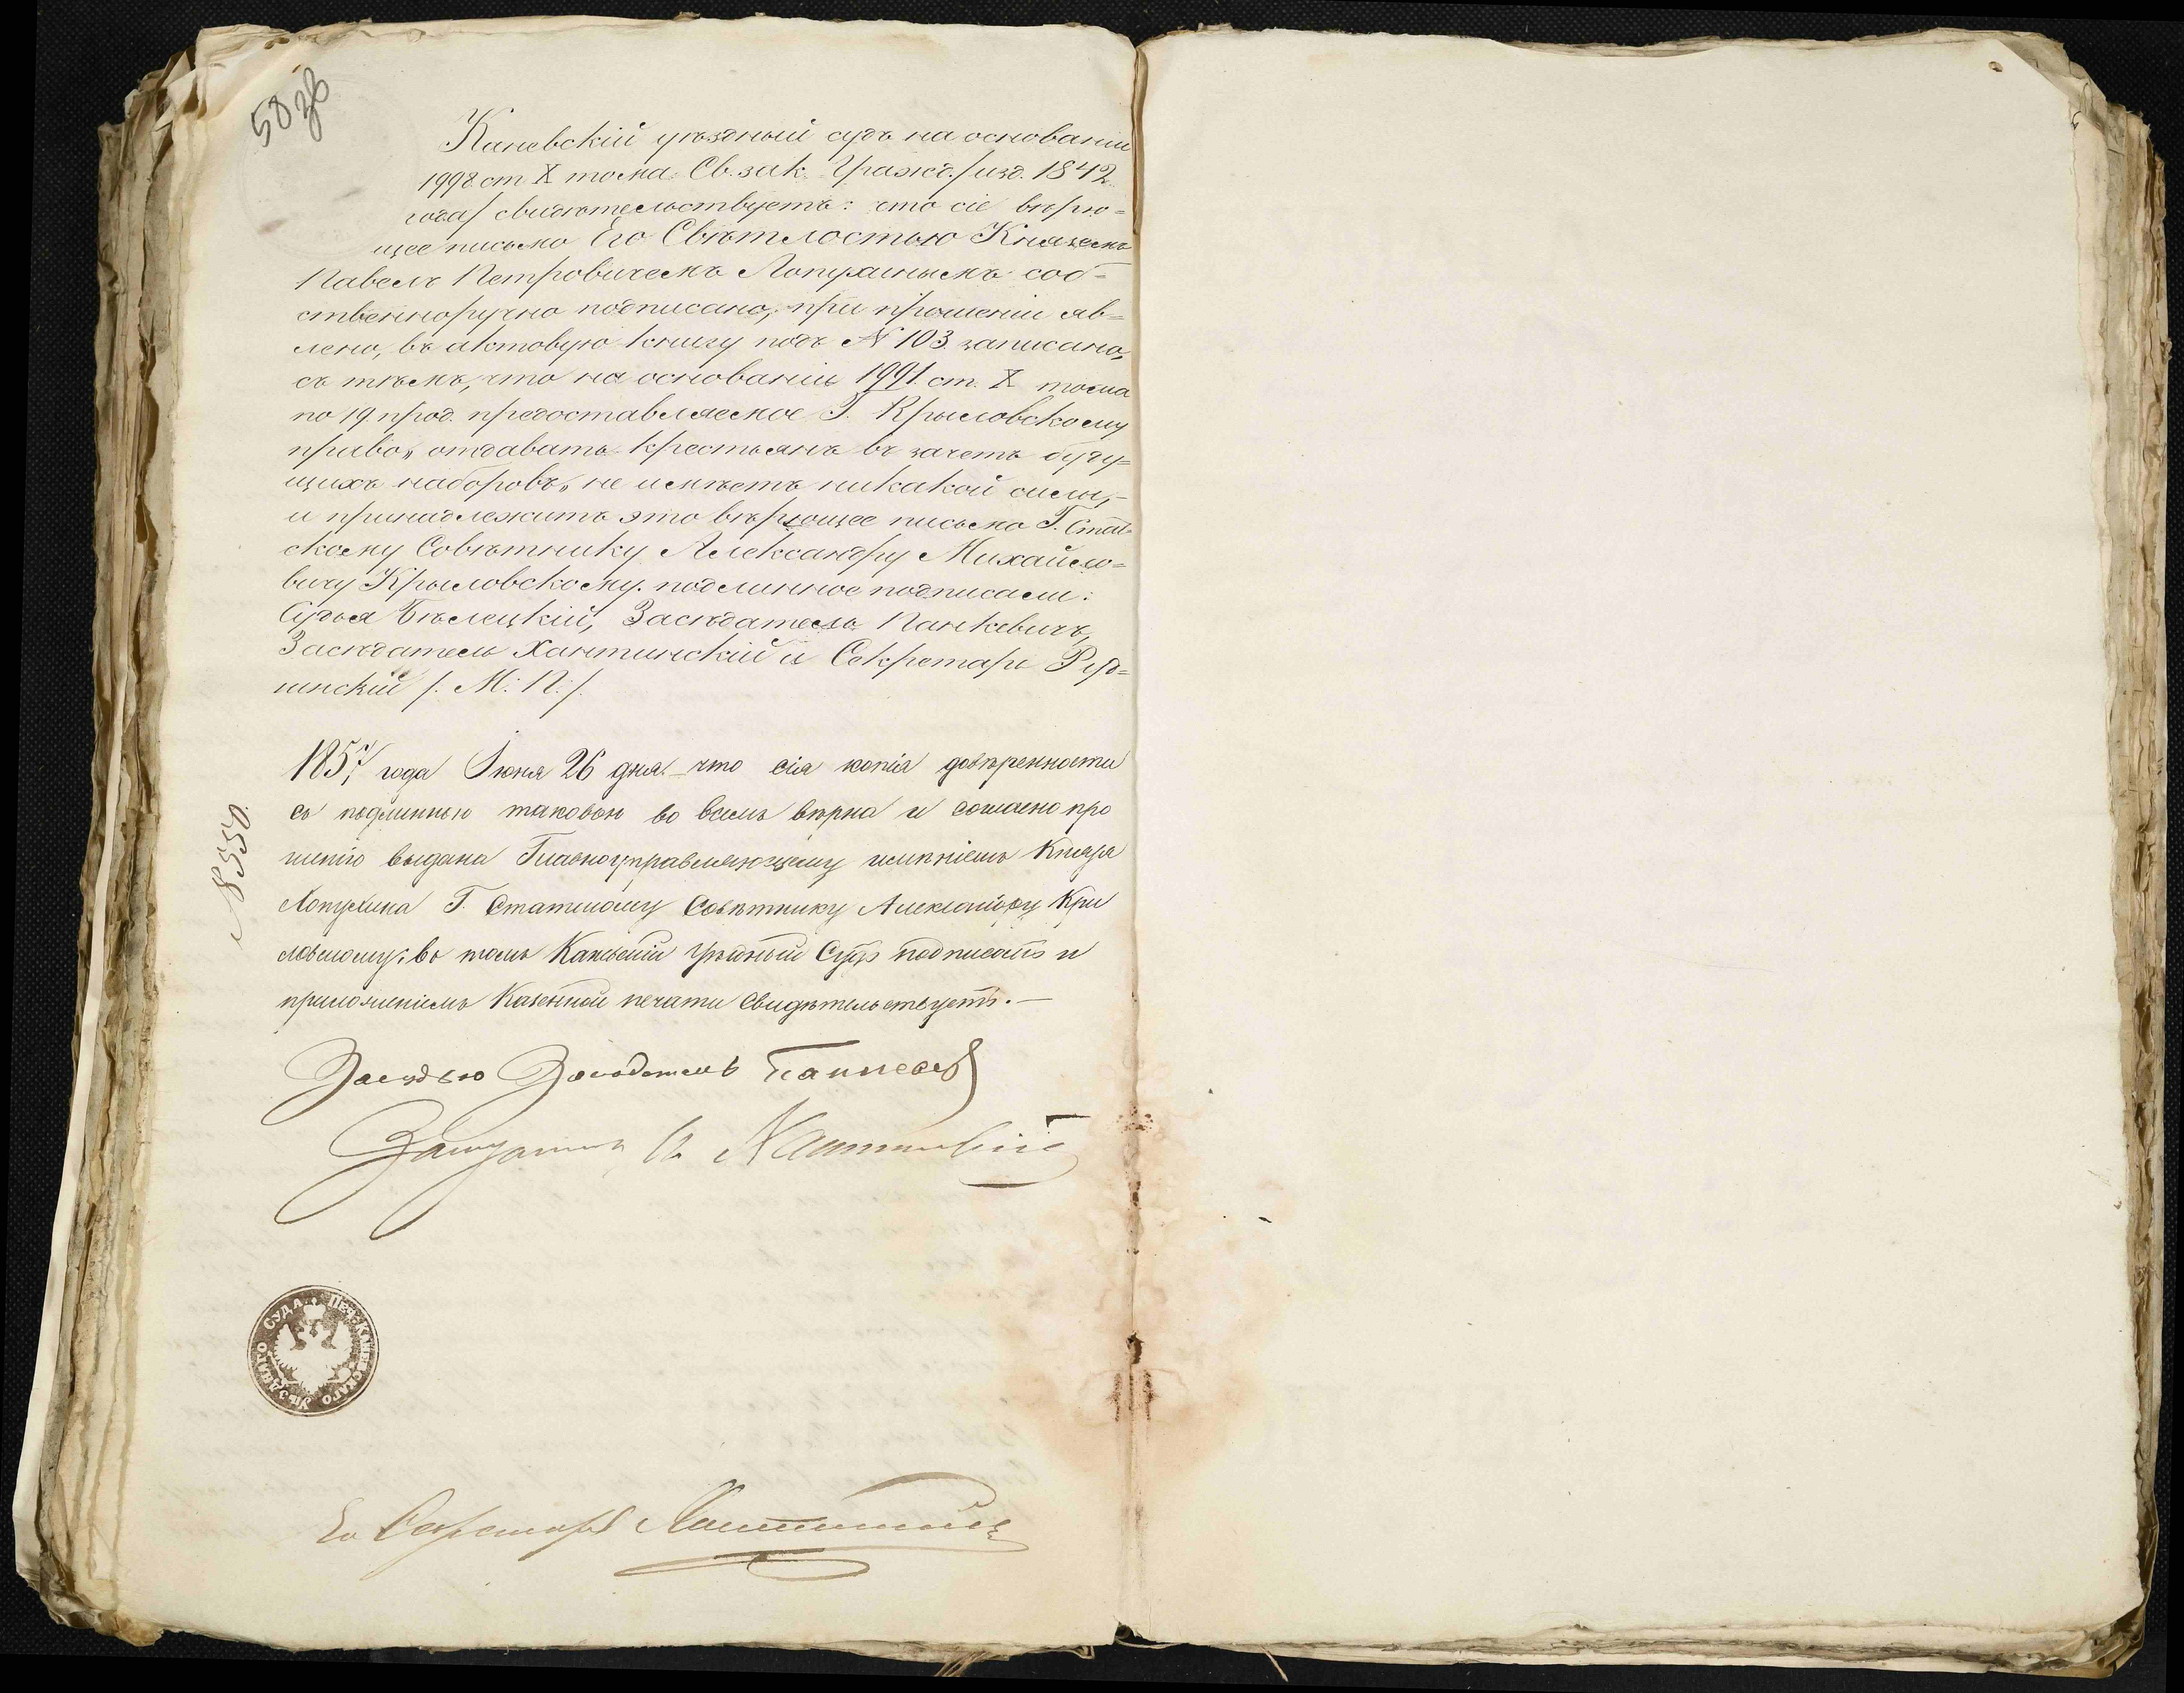 58 зв
Каневскій уѣздный судъ на основаніи
1998 ст X тома Св. зак. Гражд. / изд. 1842
года / свидѣтельствуетъ: что сіе вѣрю=
щее письмо Его Свѣтлостью Княземъ
Павелъ Петровичемъ Лопухинымъ соб=
ственноручно подписано, при прошеніи яв=
лено, въ актовую книгу подъ № 103 записано,
съ тѣмъ, что на основаніи 1991 ст. X тома
по 19 прод. предоставляемое Г. Крыловскому
право „отдавать крестьянъ въ зачетъ буду=
щихъ наборовъ„ не имѣетъ никакой силы,
и принадлежитъ это вѣрющее письмо Г. Стат=
скому Совѣтнику Александру Михайло=
вичу Крыловскому. подлинное подписали:
Судья Бѣлецкій, Засѣдатель Панкевичъ,
Засѣдатель Хантинскій и Секретарь Руд=
нинскій /: М: П: /.
1857 года Іюня 26 дня что сія копія довѣренности
съ подлинною таковою во всемъ вѣрна и согласно про
шенію выдана Главноуправляющему имѣніемъ Князя
Лопухина Г. Статскому Совѣтнику Александру Кри
ловскому; въ томъ Каневскій Уѣздный Судъ подписомъ и
приложеніемъ Казенной печати Свидѣтельствуетъ. —
№ 8550
За судью Засѣдатель Панкевичъ
Засѣдатель Хантинскій
ПЕЧ. КАНЕВСКАГО УѢЗДНАГО СУДА
За Секретаря